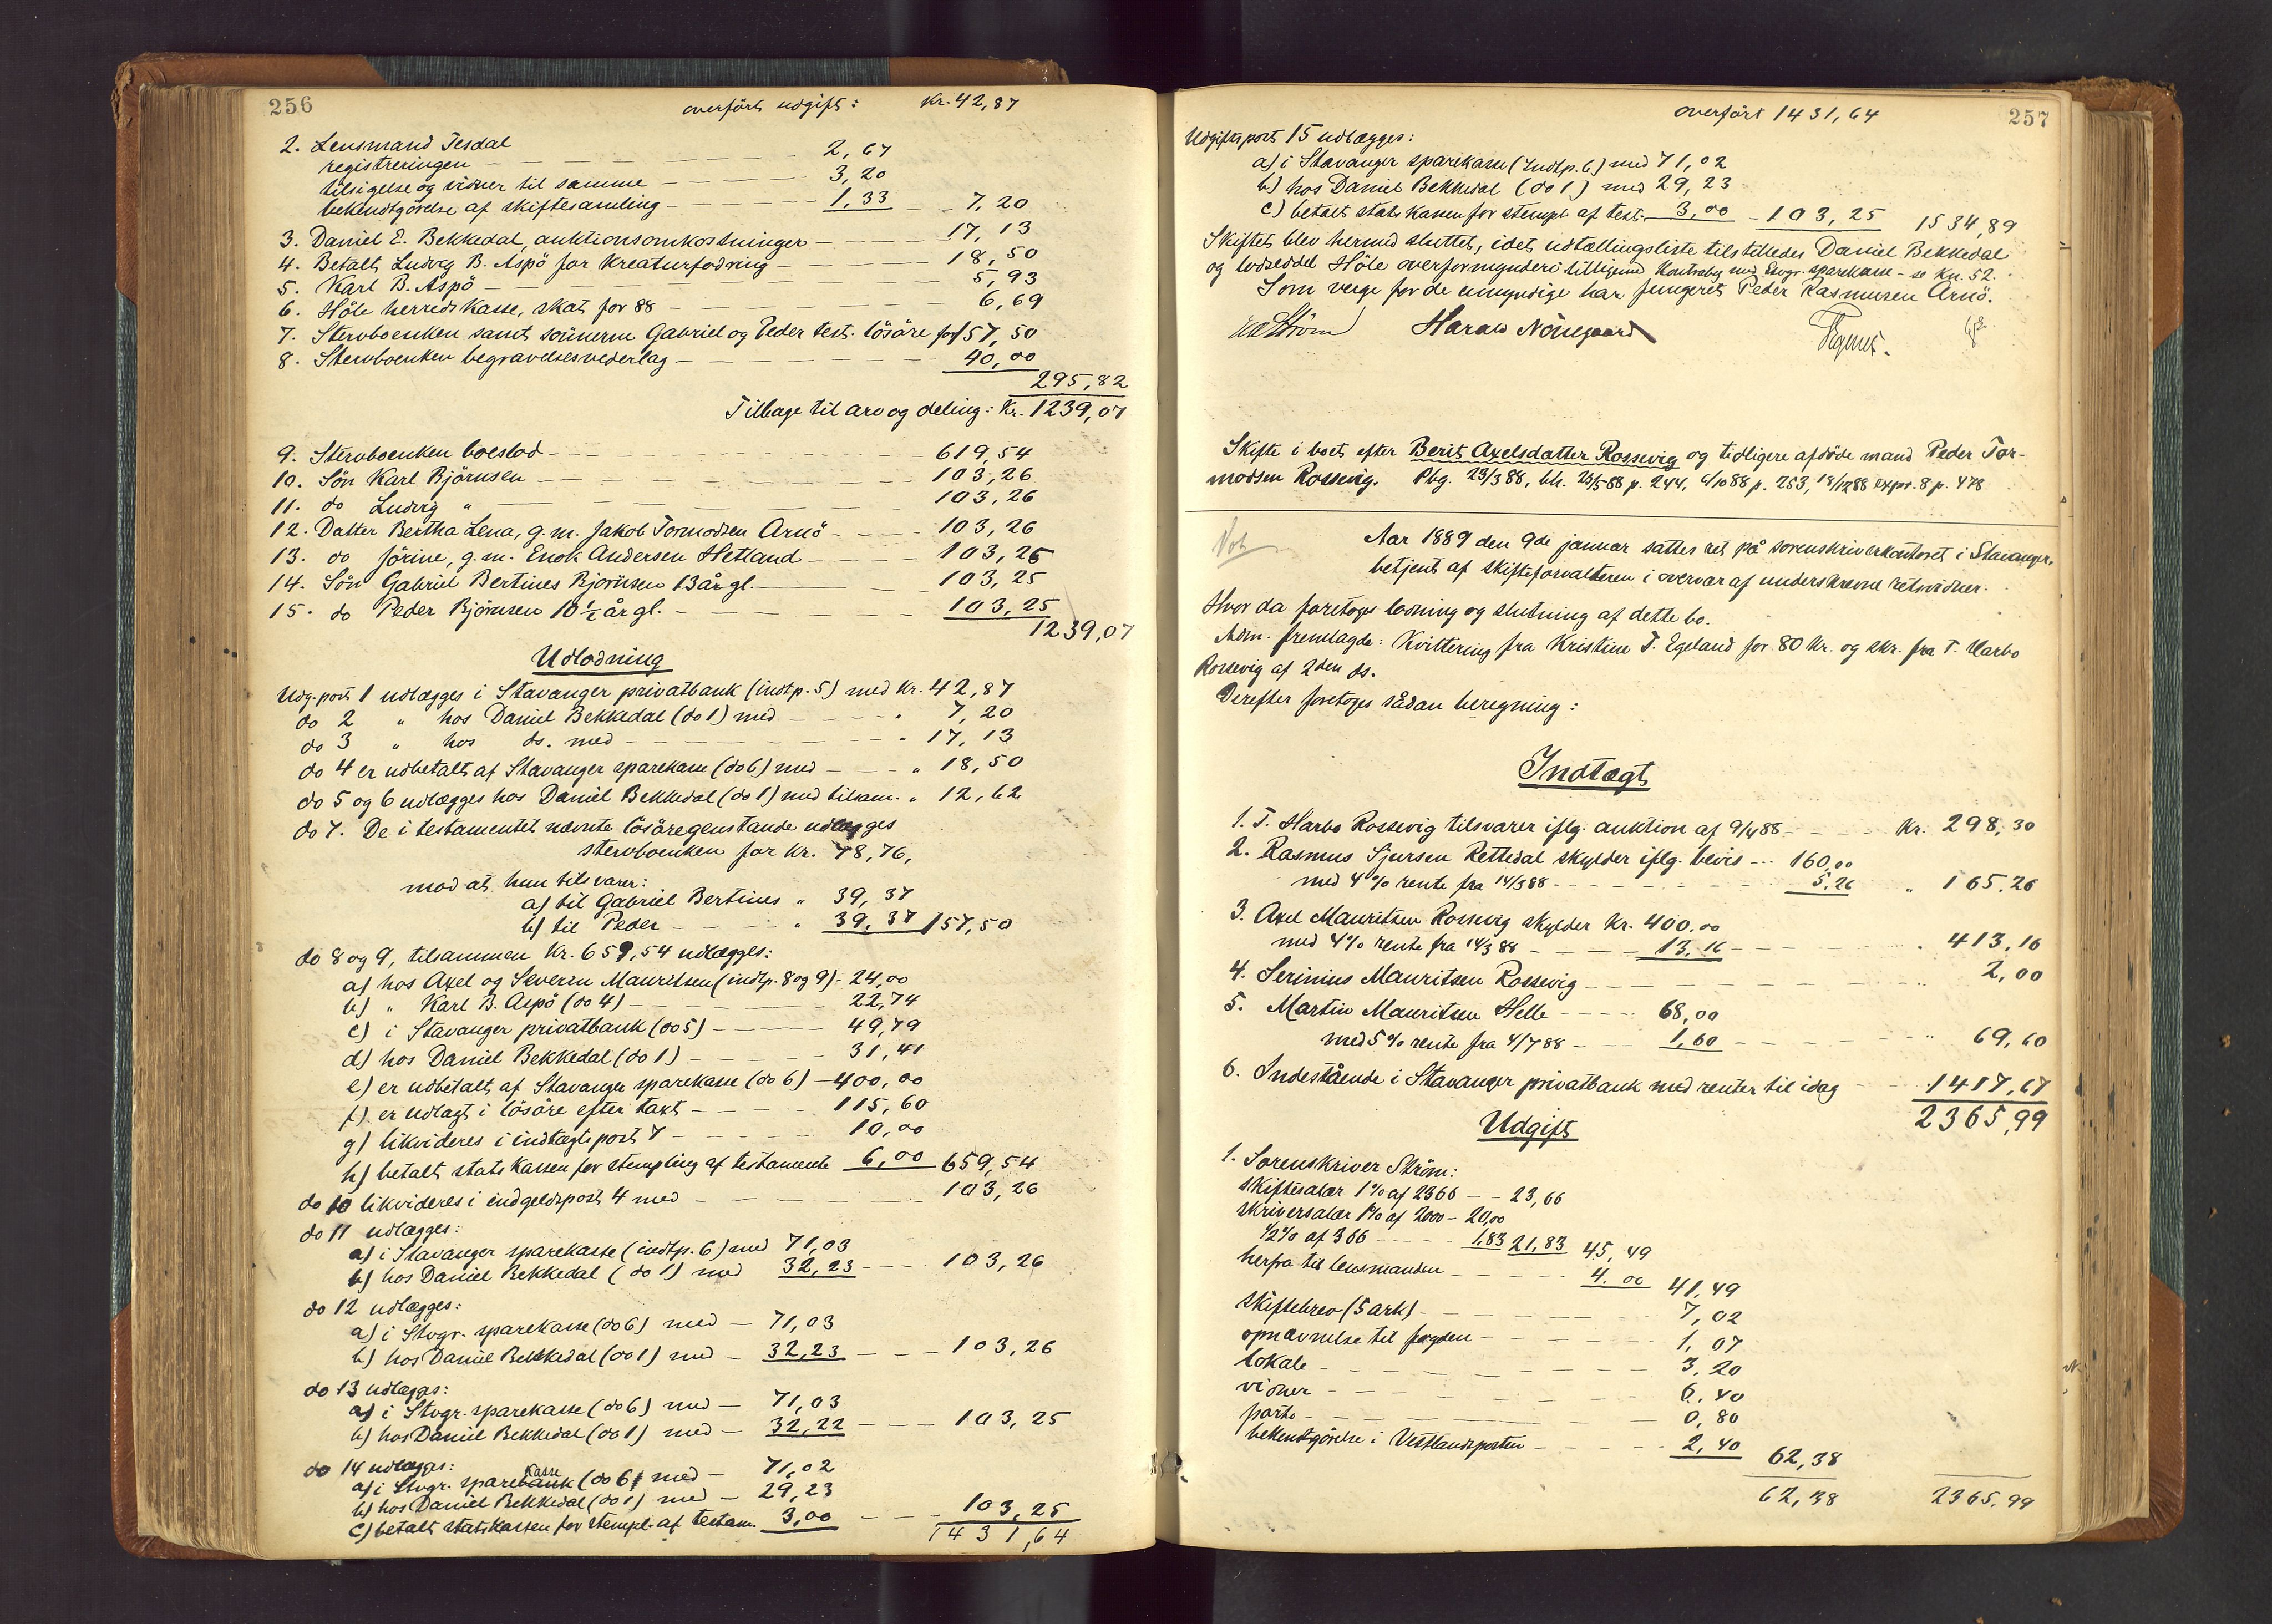 256
overført udgift: Kr. 42,87
2. Lensmand Tesdal
registreringen — 2,67
tilsigelse og vidner til samme — 3,20
bekendtgörelse af skiftesamling — 1,33 7,20
3. Daniel E. Bekkedal, auktionsomkostninger — 17,13
4. Betalt Ludvig B. Aspö for Kreaturfodring — 18,50
5. Karl B. Aspö — 5,93
6. Höle herredskasse, skat for 88 — 6,69
7. Stervboenken samt sönnerne Gabriel og Peder test. lösöre for 157,50
8. Stervboenken begravelsesvederlag — 40,00
295,82
Tilbage til arv og deling: Kr. 1239,07
9. Stervboenken boeslod — 619,54
10. Sön Karl Björnsen — 103,26
11. do Ludvig " — 103,26
12. Datter Bertha Lena, g.m. Jakob Tormodsen Arnö — 103,26
13. do Jörine, g.m. Enok Andersen Hetland — 103,25
14. Sön Gabriel Bertines Bjørnsen 13 år gl. — 103,25
15. do Peder Björnsen 10 1/2 år gl. — 103,25
1239,07
Udlodning
Udg.post 1 udlægges i Stavanger privatbank (indtp. 5) med Kr. 42,87
do 2 " hos Daniel Bekkedal (do 1) med — " 7,20
do 3 " hos ds. med — " 17,13
do 4 er udbetalt af Stavanger sparekasse (do 6) med — " 18,50
do 5 og 6 udlægges hos Daniel Bekkedal (do 1) med tilsam. " 12,62
do 7. De i testamentet nævnte lösöregenstande udlægges
stervboenken for Kr. 78,76,
mod at hun tilsvarer:
a) til Gabriel Bertines " 39,37
b) til Peder — " 39,37 157,50
do 8 og 9, tilsammen Kr. 659,54 udlægges:
a) hos Axel og Severin Mauritsen (indtp. 8 og 9) - 24,00
b) " Karl B. Aspö (do 4) — 22,74
c) i Stavanger privatbank (do 5) — 49,79
d) hos Daniel Bekkedal (do 1) — 31,41
e) er udbetalt af Stavanger sparekasse (do 6) — 400,00
f) er udlagt i lösöre efter taxt — 115,60
g) likvideres i indtægtspost 7 — 10,00
h) betalt statskassen for stempling af testamente 6,00 659,54
do 10 likvideres i indgeldspost 4 med — 103,26
do 11 udlægges:
a) i Stavanger sparekasse (indtp. 6) med 71,03
b) hos Daniel Bekkedal (do 1) med 32,23 — 103,26
do 12 udlægges:
a) i Stvgr. sparekasse (do 6) med — 71,03
b) hos Daniel Bekkedal (do 1) med — 32,23 — 103,26
do 13 udlægges:
a) i Stvgr. sparekasse (do 6) med — 71,03
b) hos Daniel Bekkedal (do 1) med — 32,22 — 103,25
do 14 udlægges:
a) i Stvgr. sparebank kasse (do 6) med — 71,02
b) hos Daniel Bekkedal (do 1) med — 29,23
c) betalt statskassen for stempl. af testam. 3,00 — 103,25
1431,64
overført 1431,64
257
Udgiftspost 15 udlægges:
a) i Stavanger sparekasse (Indtp. 6) med 71,02
b) hos Daniel Bekkedal (do 1) med 29,23
c) betalt statskassen for stempl. af test. 3,00 - 103,25 1534,89
Skiftet blev hermed sluttet, idet udtællingsliste tilstilledes Daniel Bekkedal
og lodseddel Höle overformynderi tilligemed Kontrabog med Stvgr. sparekasse - se Kn. 52.
Som verge for de umyndige har fungeret Peder Rasmusen Arnö.
Ström Harald Nörregaard
Skifte i boet efter Berit Axelsdatter Rossevig og tidligere afdöde mand Peder Tor-
modsen Rossevig. Pbg. 23/3 88, bh. 23/5 88 p. 244, 6/10 88 p. 253, 18/12 88 expr. 8 p. 478
Aar 1889 den 9de januar sattes ret på sorenskriverkontoret i Stavanger,
betjent af skifteforvalteren i overvær af underskrevne retsvidner.
Hvor da foretoges lodning og slutning af dette bo.
Adm. fremlagde: Kvittering fra Kristine T. Egeland for 80 Kr. og skr. fra T. Harbo
Rossevig af 2den ds.
Derefter foretoges sådan beregning:
Indtægt
1. T. Harbo Rossevig tilsvarer iflg. auktion af 9/4 88 — Kr. 298,30
2. Rasmus Sjursen Rettedal skylder iflg. bevis — 160,00
med 4 % rente fra 14/3 88 — 5,26 " 165,26
3. Axel Mauritsen Rossevig skylder Kr. 400,00
med 4% rente fra 14/3 88 — 13,16 — " 413,16
4. Serinius Mauritsen Rossevig — " 2,00
5. Martin Mauritsen Helle — 68,00
med 5 % rente fra 4/7 88 — 1,60 — " 69,60
6. Indestående i Stavanger privatbank med renter til idag — 1417,67
2365,99
Udgift
1. Sorenskriver Ström:
skiftesalær 1 % af 2366 — 23,66
skriversalær 1% af 2000 — 20,00
1/2 % af 366 — 1,83 21,83 45,49
herfra til lensmanden — 4,00 41,49
skiftebrev (5 ark) — 7,02
opnævnelse til fogden — 1,07
lokale — 3,20
vidner — 6,40
porto — 0,80
bekendtgörelse i Vestlandsposten — 2,40 62,38
62,38 2365,99